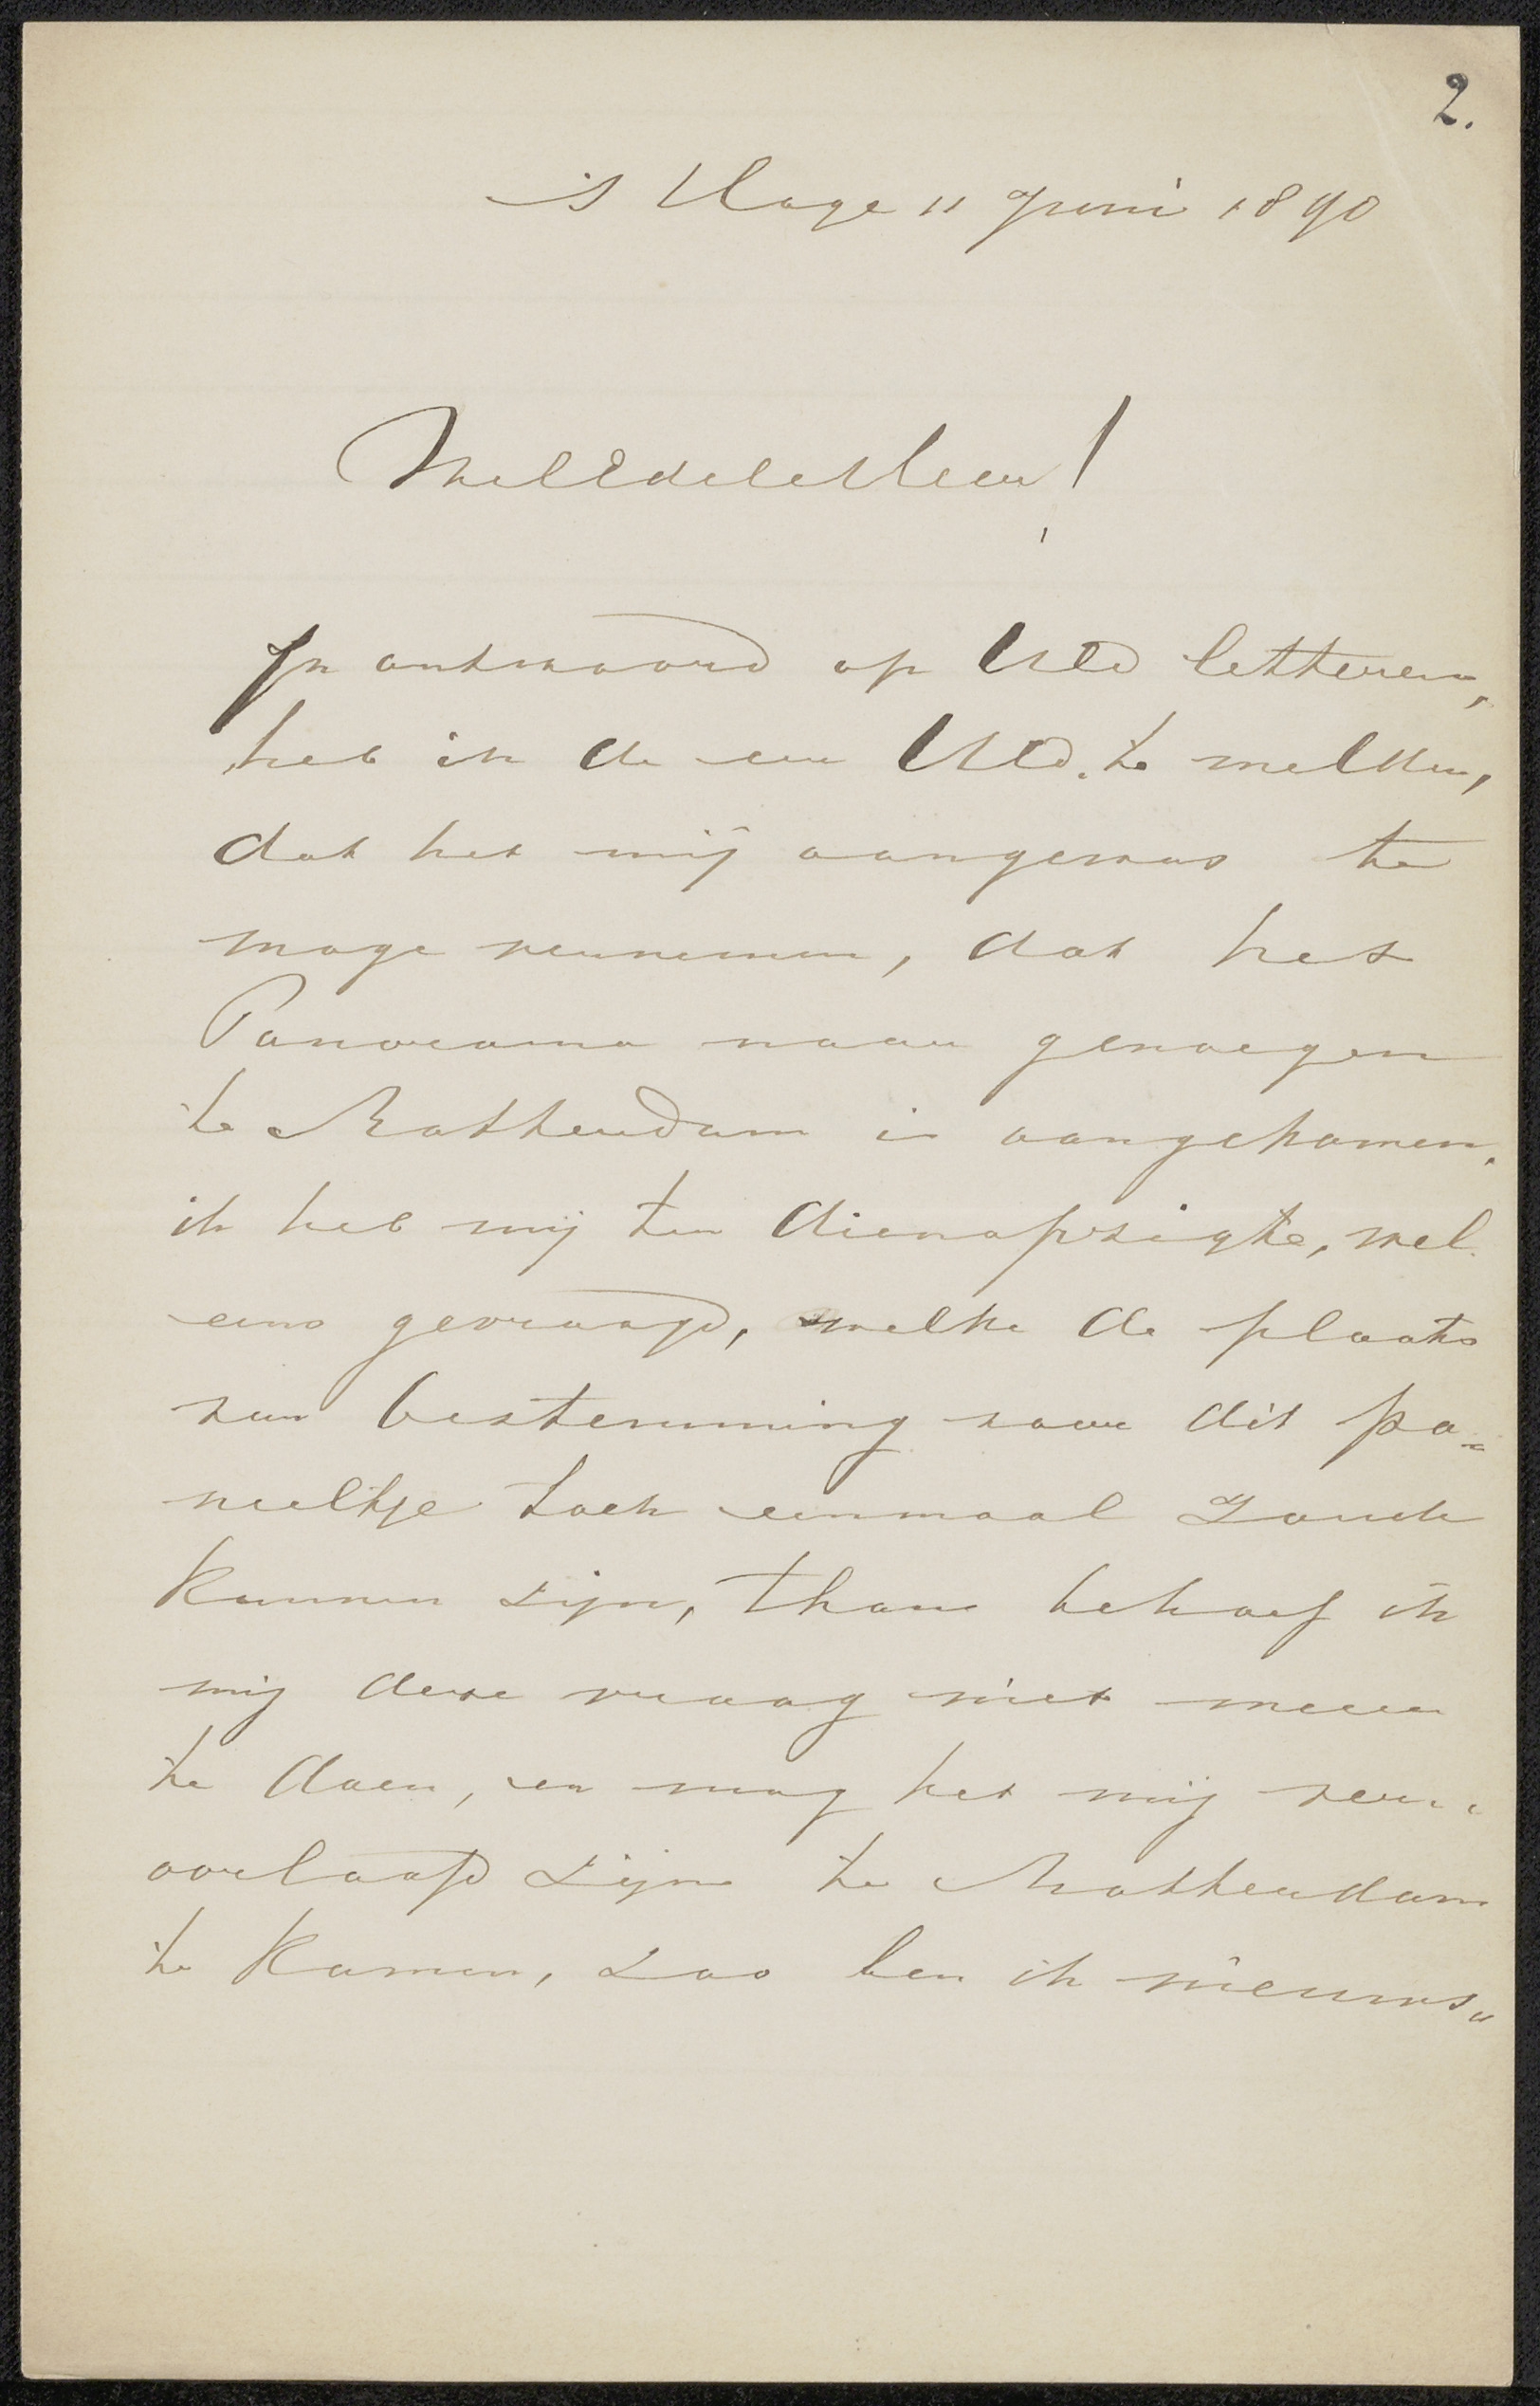 2.
's Hage 11 Juni 1890
WelEdeleHeer!
In antwoord op UEd letteren,
heb ik de eer UEd. te melden,
dat het mij aangenaam te
moge vernemen, dat het
Panorama naar genoegen
te Rotterdam is aangekomen.
ik heb mij ten dien opzigte, wel
eens gevraagd, welke de plaats
van bestemming voor dit pa-
neeltje toch eenmaal zoude
kunnen zijn, thans behoef ik
mij deze vraag niet meer
te doen, en mag het mij ver-
oorloofd zijn te Rotterdam
te komen, zoo ben ik nieuws„